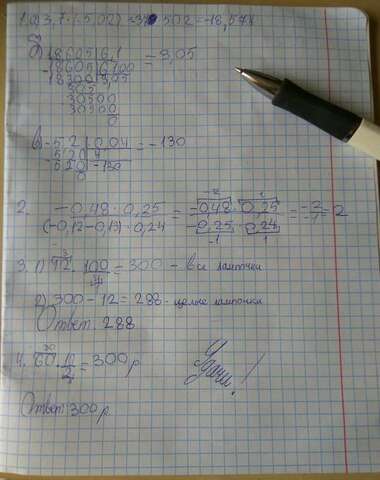 1. а) 3,7·(-5,02) = -18,574
б) 18605 | 6,1 = 3,05
18605 | 6,100
18300 | 3,05
305
30500
30500
0
в) -5,2 | 0,04 = -130
520 | 4
520 | -130
0
2. -0,48 · 0,25 / (-0,12-0,13) · 0,24 = -0,48 · 0,25 / -0,25 · 0,24 = -2 / -1 = 2
3. 1) 12 · 100 / 4 = 300 - все лампочки
2) 300 - 12 = 288 - целые лампочки
Ответ: 288
4. 60 · 10 / 2 = 300 р
Удачи!
Ответ: 300 р